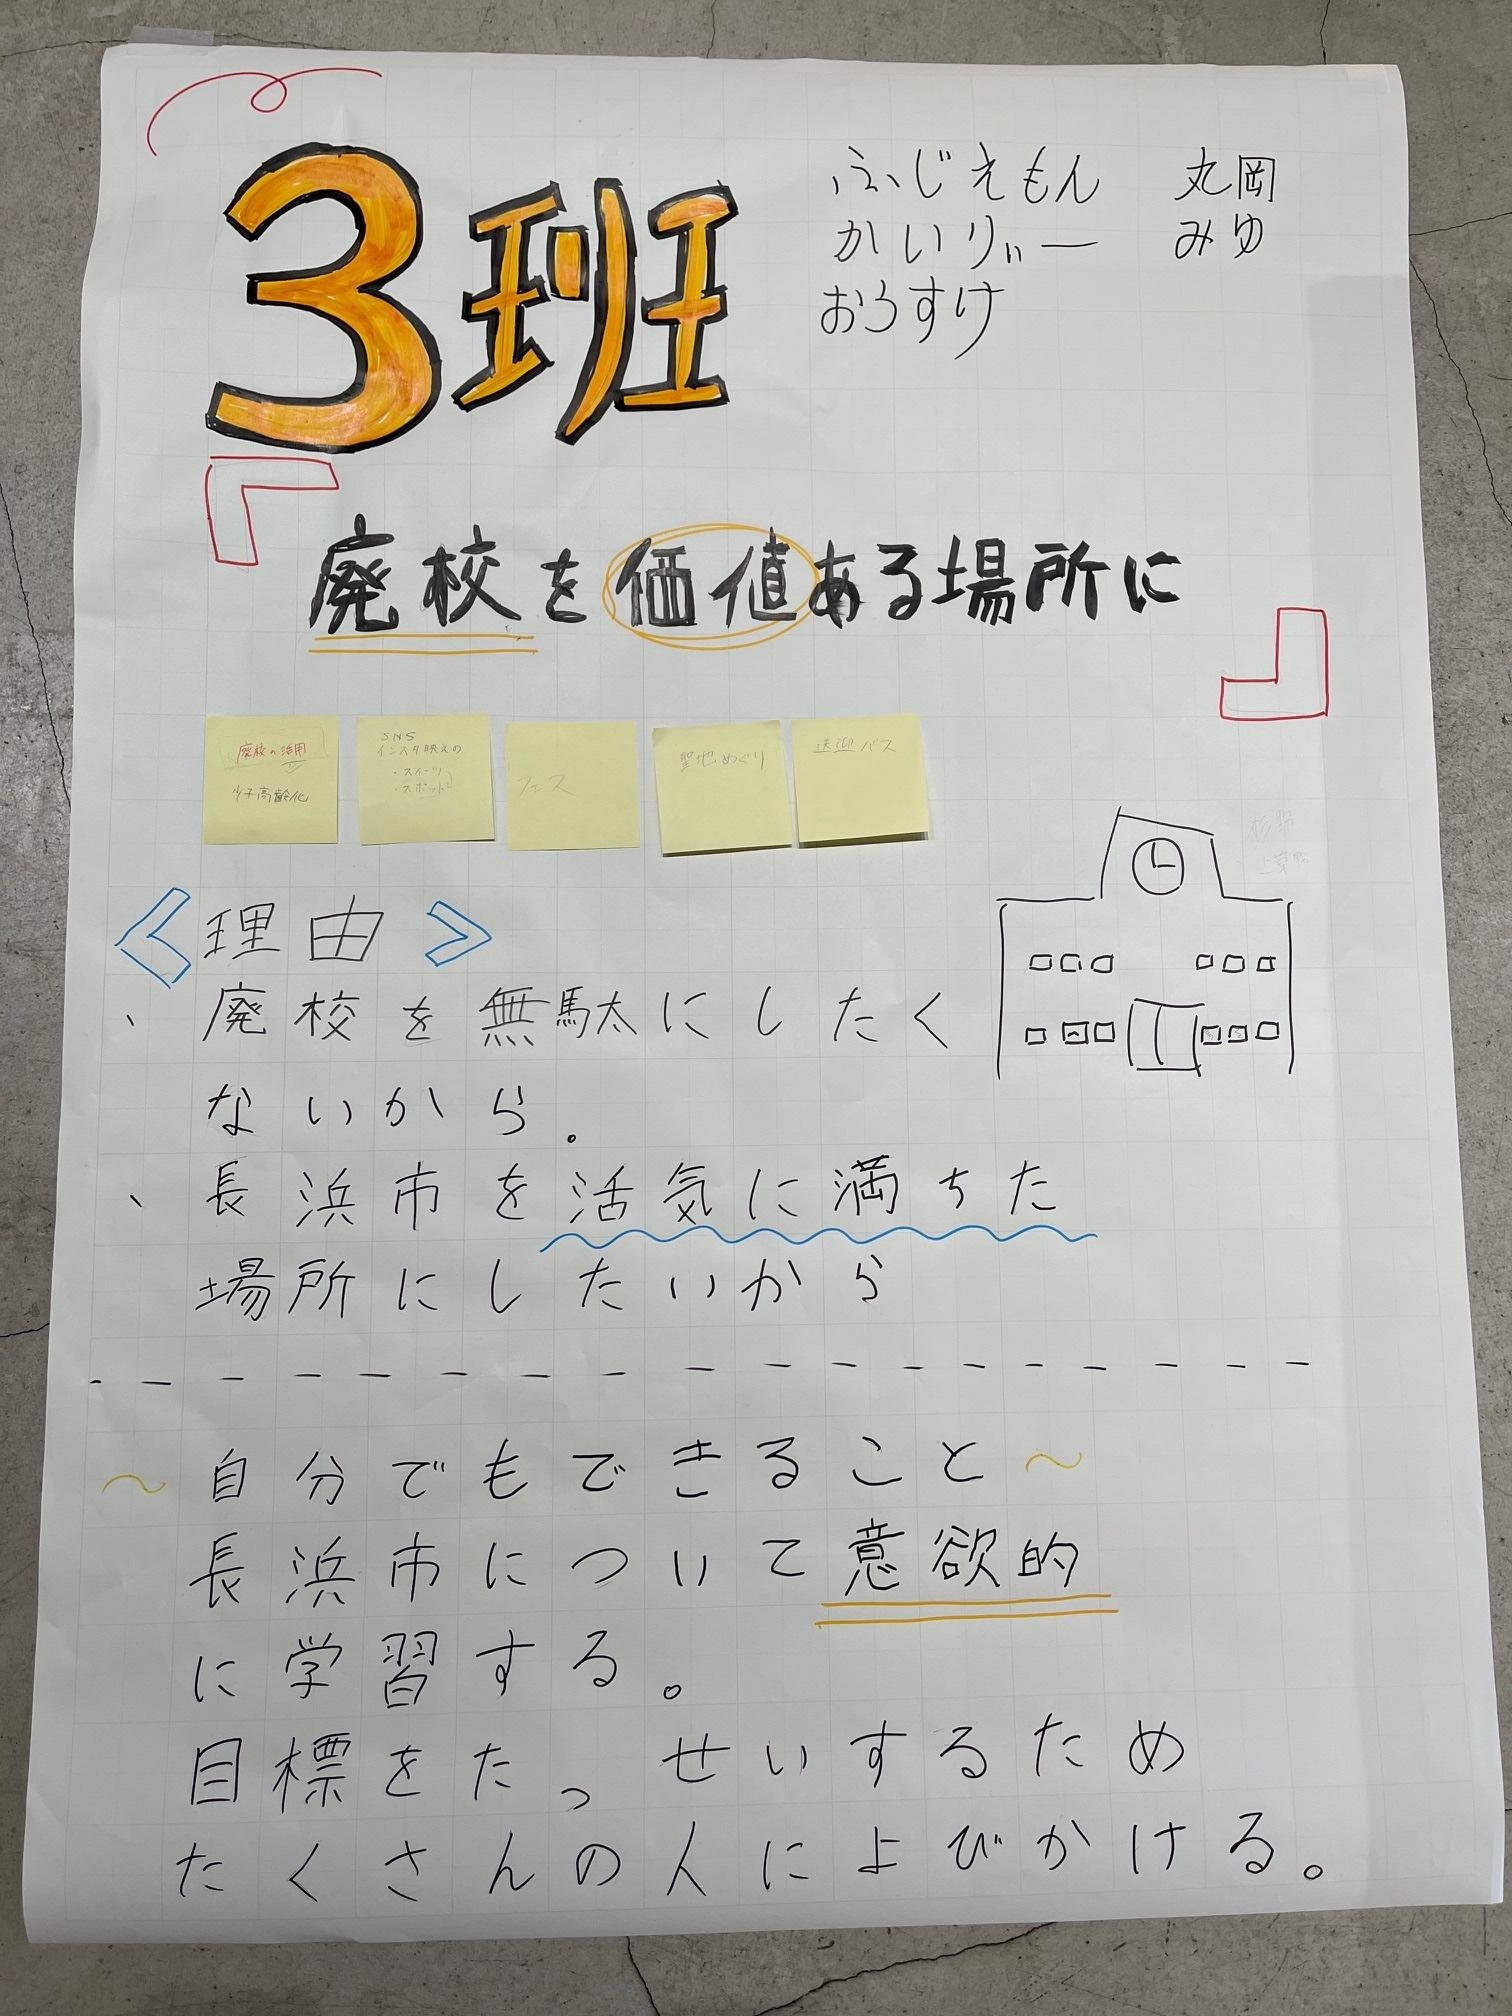 3班
ふじえもん 丸岡
かいりぃー みゆ
おうすけ
『廃校を価値ある場所に』
廃校の活用
少子高齢化
SNS
インスタ映えの
・スイーツ
・スポット
フェス
聖地めぐり
送迎バス
<理由>
、廃校を無駄にしたく
ないから。
、長浜市を活気に満ちた
場所にしたいから
~自分でもできること~
長浜市について意欲的
に学習する。
目標をたっせいするため
たくさんの人によびかける。